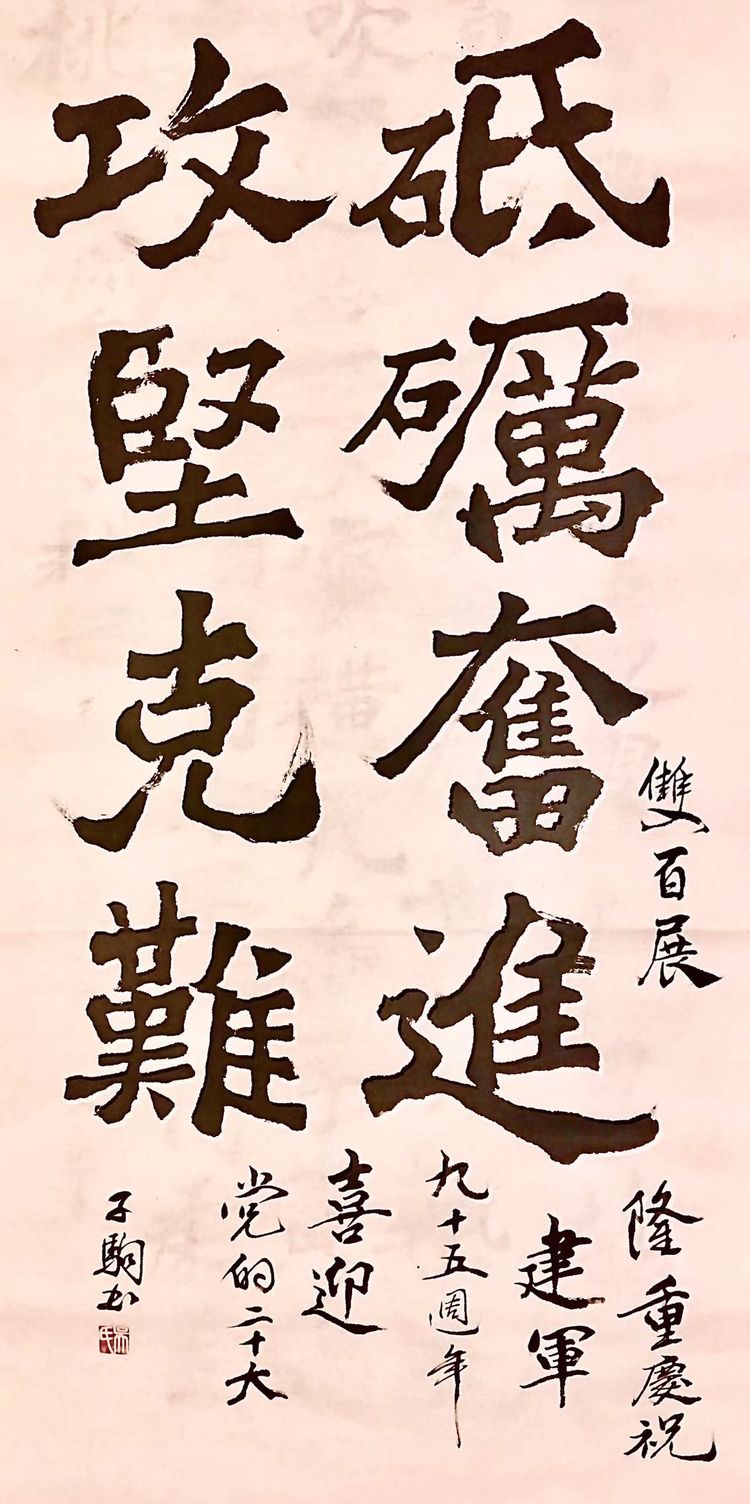 砥礪奮進
攻堅克難
雙百展
隆重慶祝
建軍
九十五週年
喜迎
党的二十大
子駒书